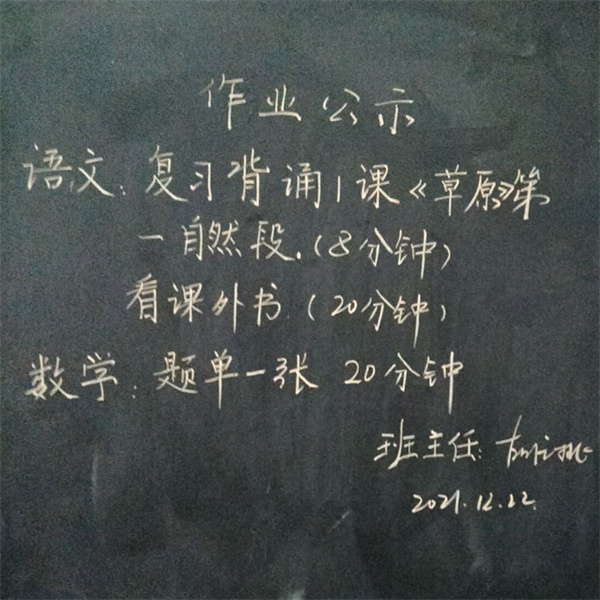 作业公示
语文:复习背诵1课《草原》第
一自然段.(8分钟)
看课外书(20分钟)
数学:题单一张 20分钟
班主任:
2021.12.22.